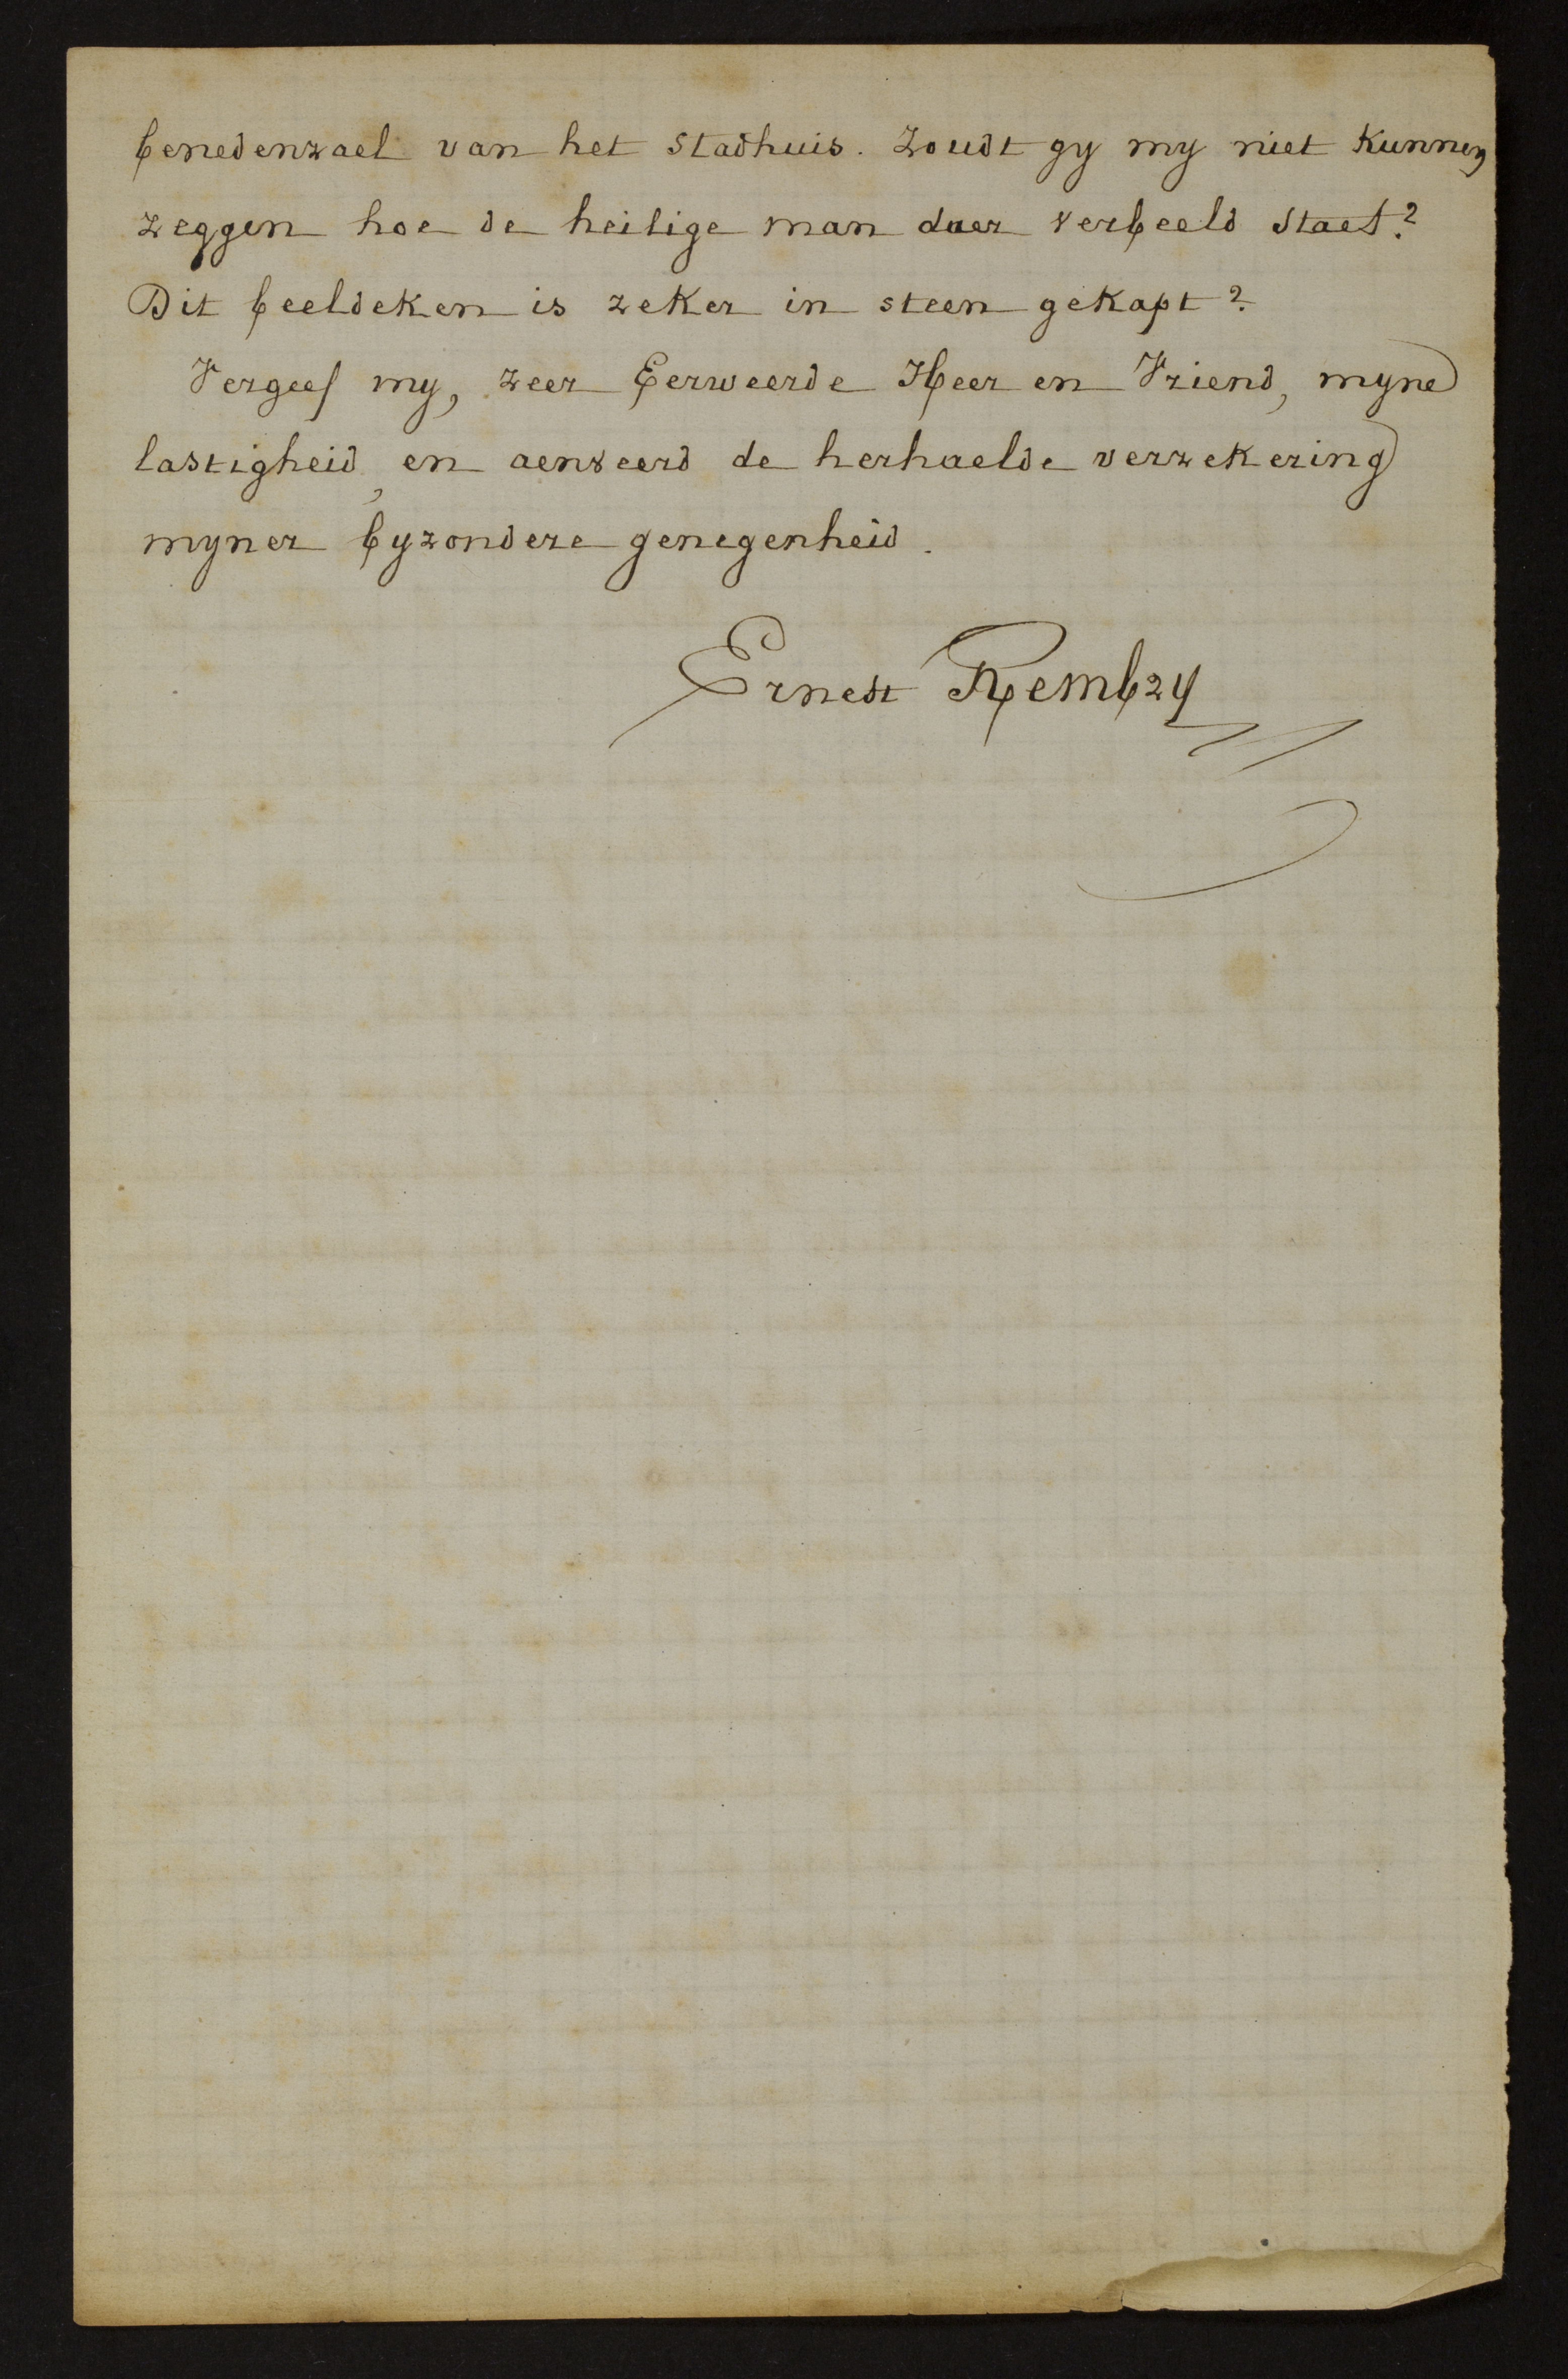 benedenzael van het Stadhuis. Zoudt gy my niet kunnen
zeggen hoe de heilige man daer verbeeld staet?
Dit beeldeken is zeker in steen gekapt?
Vergeef my, zeer Eerweerde Heer en Vriend, myne
lastigheid, en aenveerd de herhaelde verzekering
myner byzondere genegenheid.
Ernest Rembry